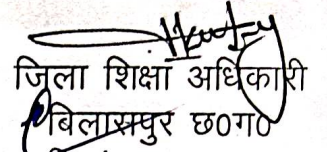 जिला शिक्षा अधिकारी
बिलासपुर छ0ग0